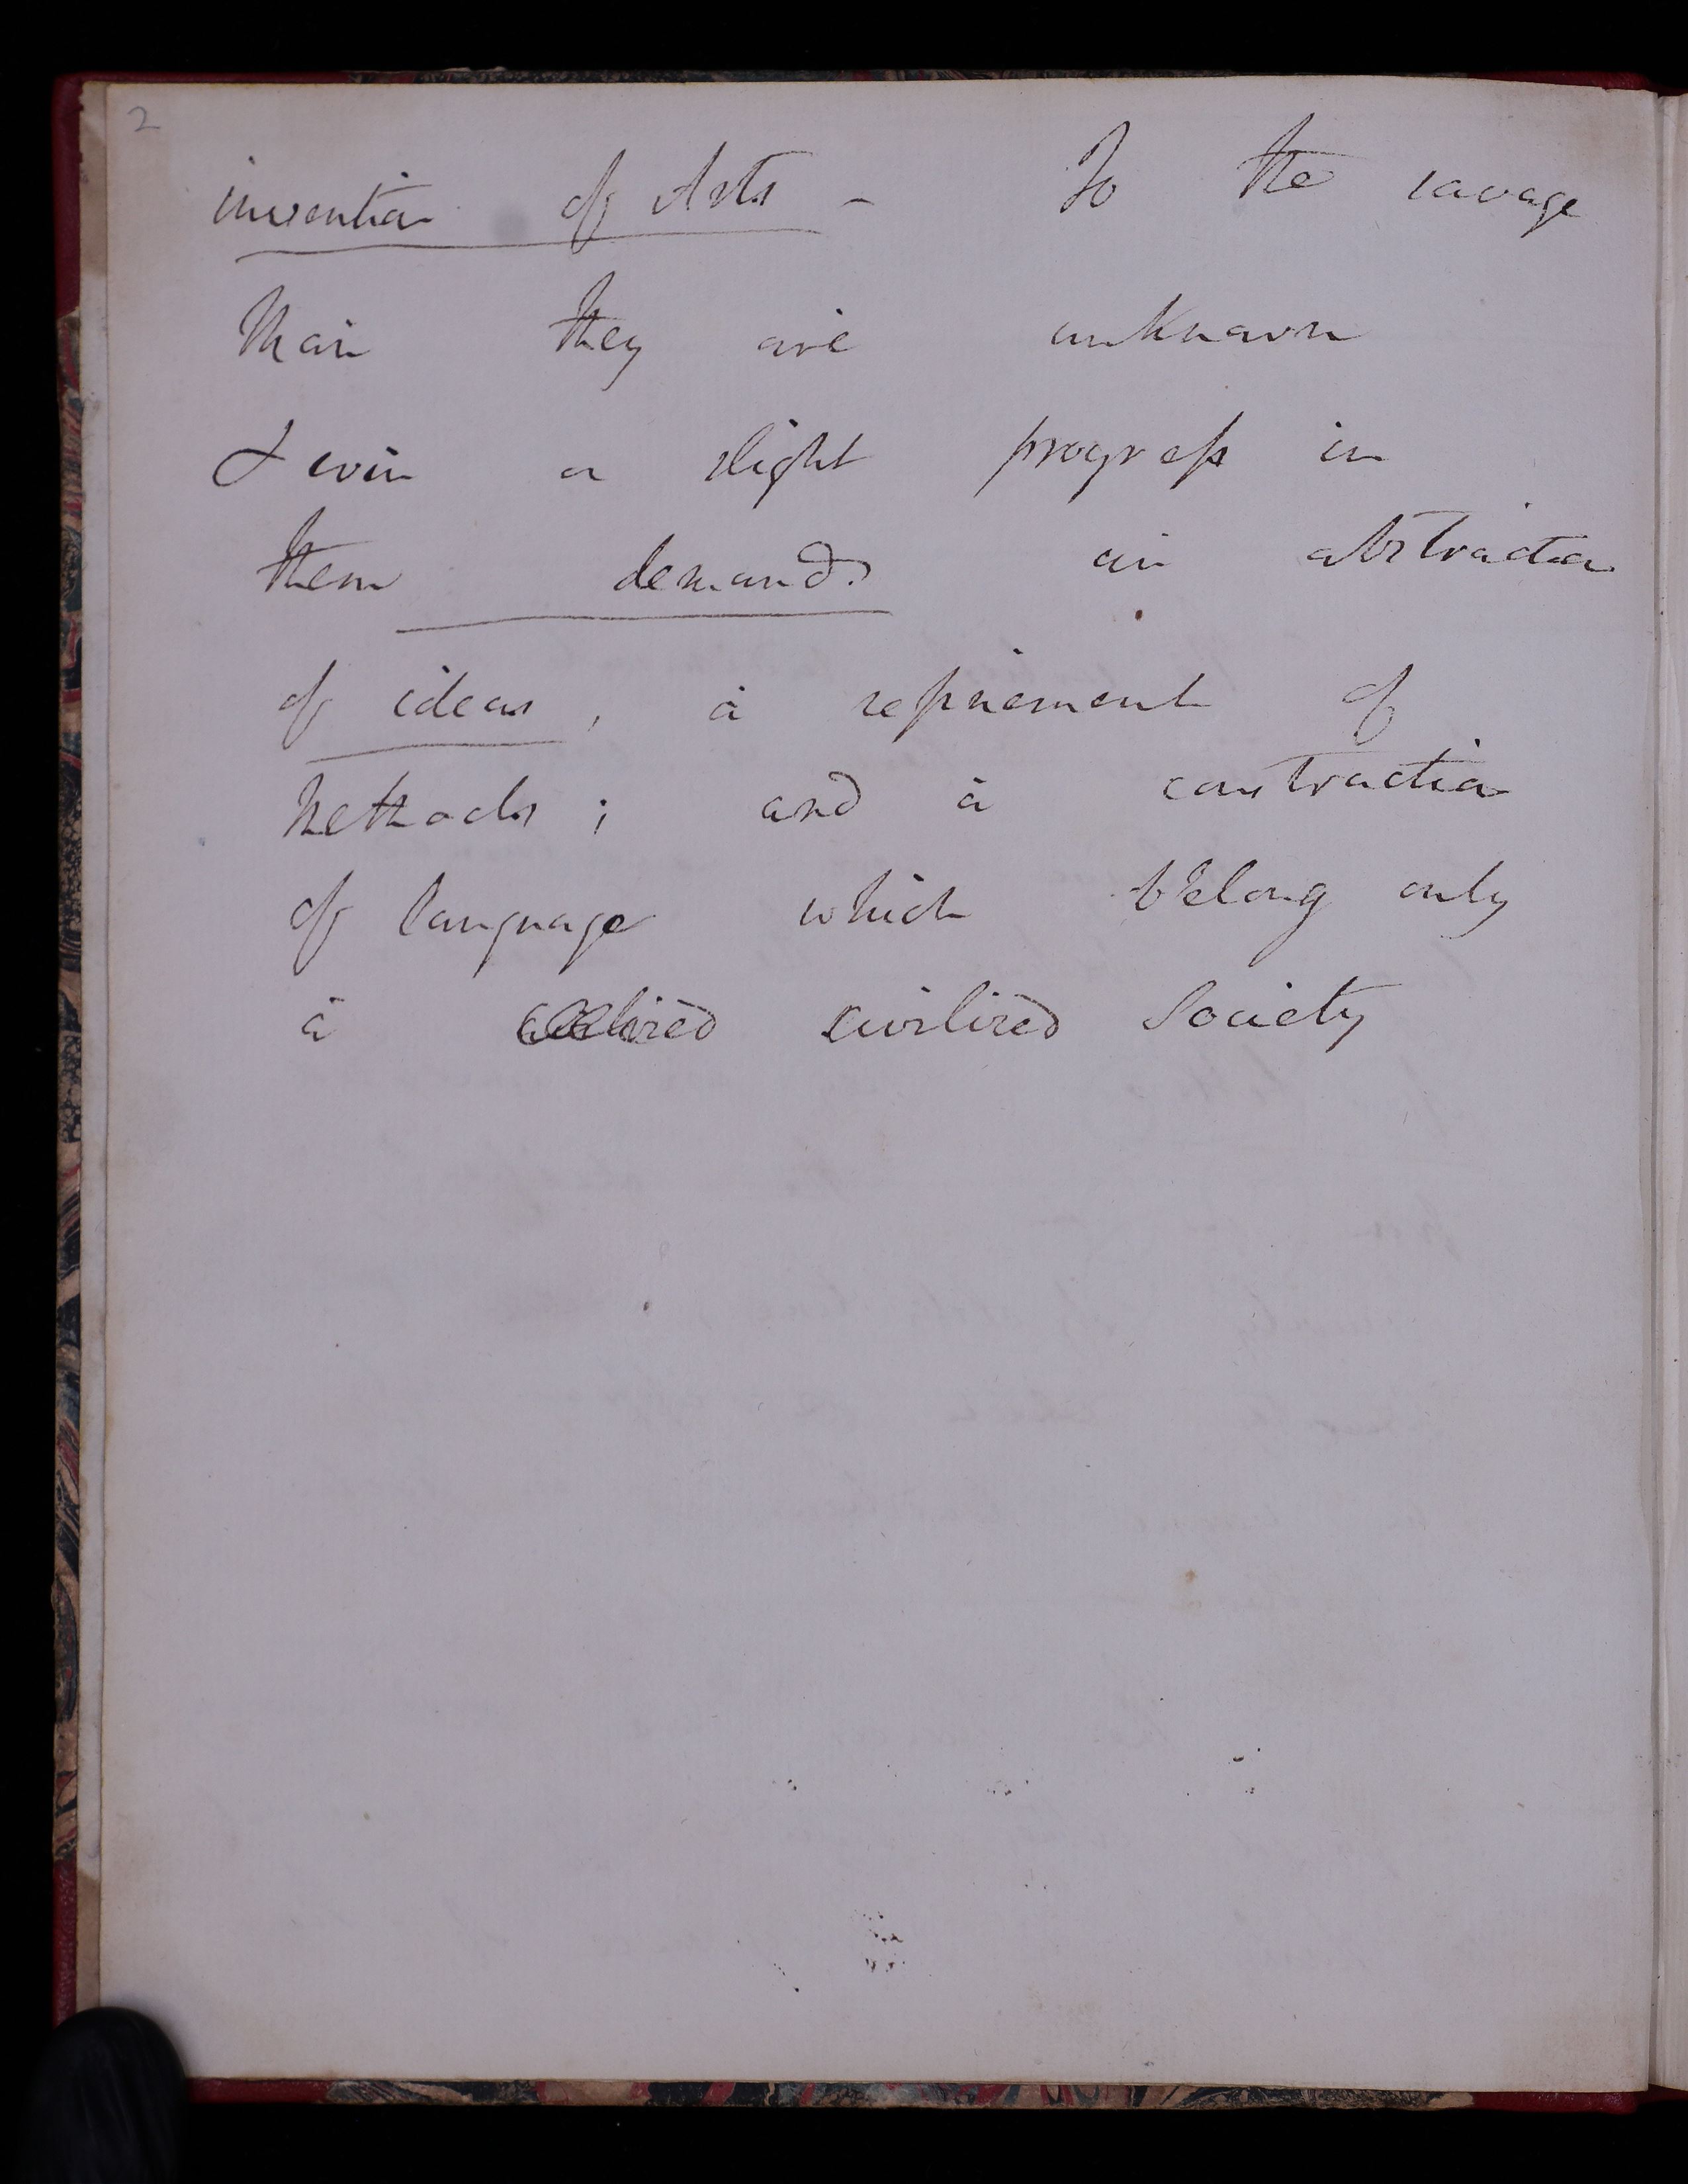 2
invention of Arts - To the savage
Man they are unknown
& even a slight progress in
them demands an abstraction
of ideas, a refinement of
Methods; and a construction
of language which belong only
a civilized Society